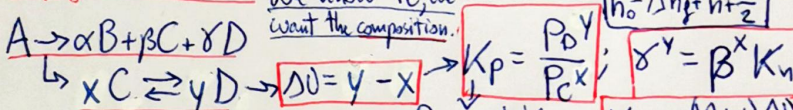 want the composition.
A→αB+βC+γD
↳ xC ⇄ yD → ΔU = y - x → Kp = P_D^y / P_C^x ; γ^y = β^x Kn